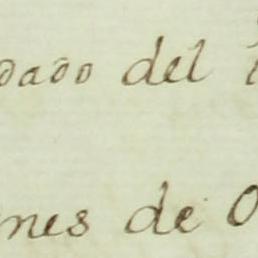 dado del
nes de